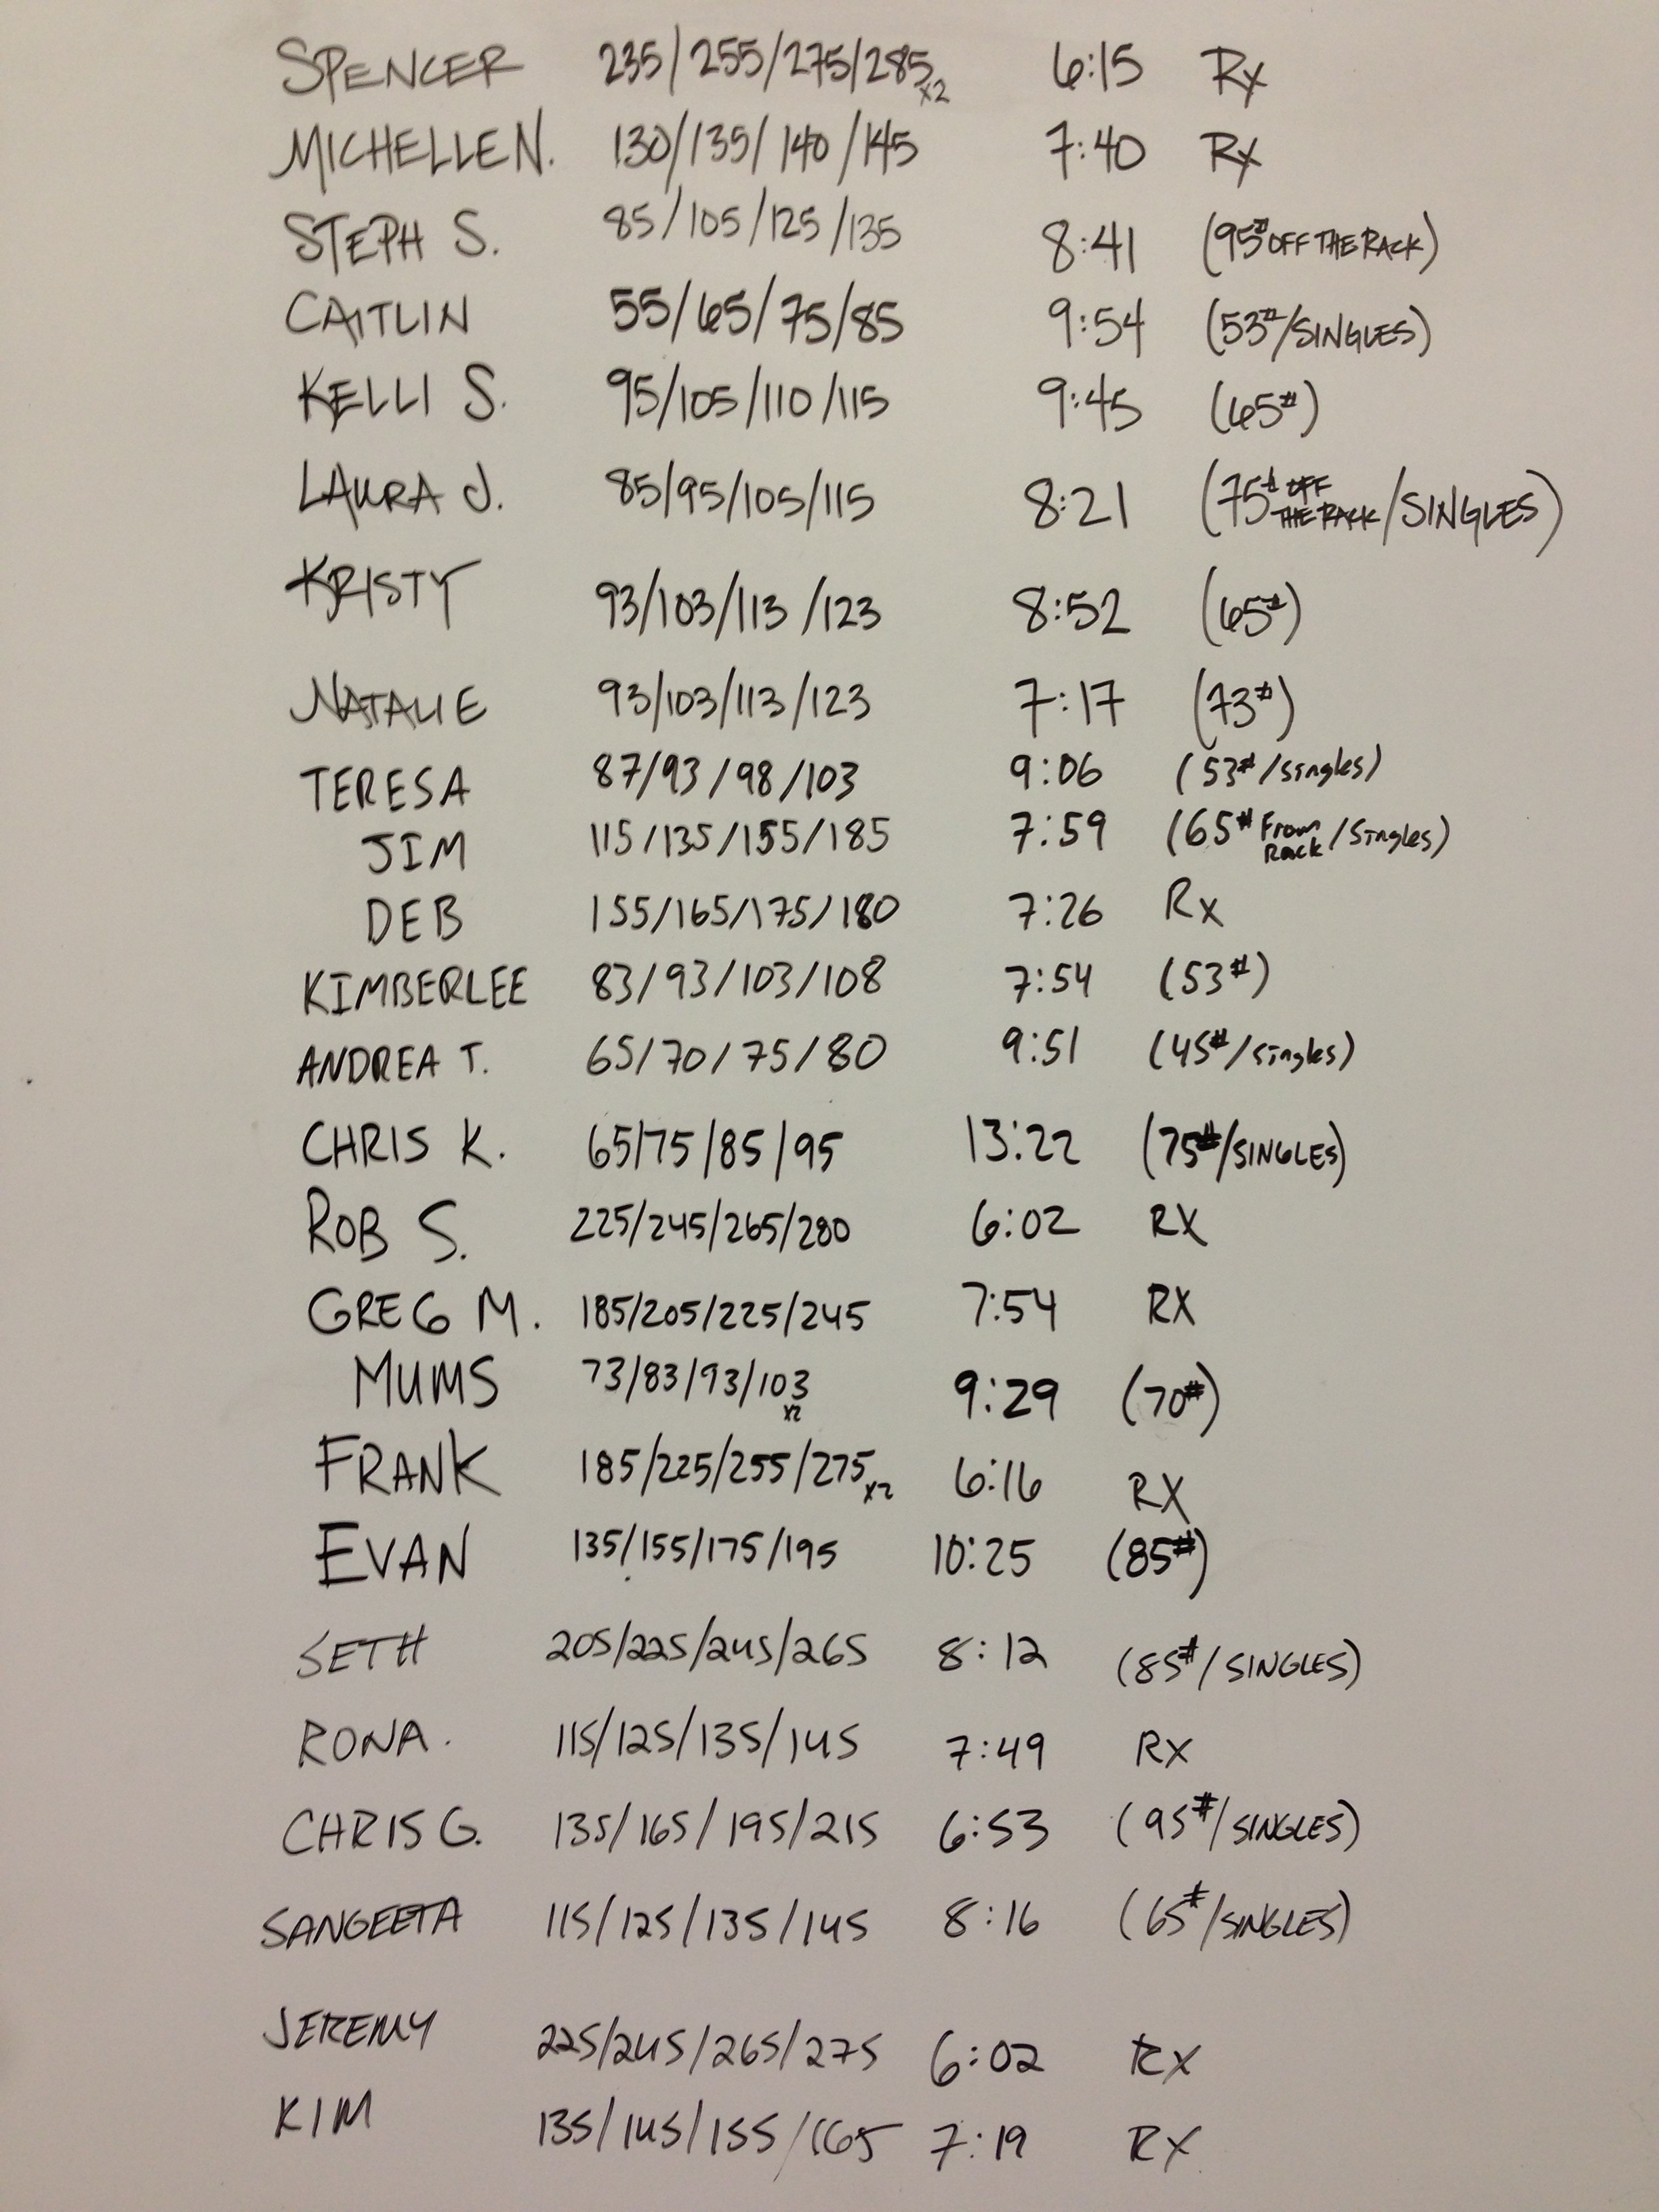 SPENCER 235/255/275/285 x2 6:15 Rx
MICHELLE N. 130/135/140/145 7:40 Rx
STEPH S. 85/105/125/135 8:41 (95# OFF THE RACK)
CAITLIN 55/65/75/85 9:54 (53#/SINGLES)
KELLI S. 95/105/110/115 9:45 (65#)
LAURA J. 85/95/105/115 8:21 (75# OFF THE RACK/SINGLES)
KRISTY 93/103/113/123 8:52 (65#)
NATALIE 93/103/113/123 7:17 (73#)
TERESA 87/93/98/103 9:06 (53#/singles)
JIM 115/135/155/185 7:59 (65# From Rack/Singles)
DEB 155/165/175/180 7:26 Rx
KIMBERLEE 83/93/103/108 7:54 (53#)
ANDREA T. 65/70/75/80 9:51 (45#/singles)
CHRIS K. 65/75/85/95 13:22 (75#/SINGLES)
ROB S. 225/245/265/280 6:02 RX
GREG M. 185/205/225/245 7:54 RX
MUMS 73/83/93/103 x2 9:29 (70#)
FRANK 185/225/255/275 x2 6:16 RX
EVAN 135/155/175/195 10:25 (85#)
SETH 205/225/245/265 8:12 (85#/SINGLES)
RONA. 115/125/135/145 7:49 RX
CHRIS G. 135/165/195/215 6:53 (95#/SINGLES)
SANGEETA 115/125/135/145 8:16 (65#/SINGLES)
JEREMY 225/245/265/275 6:02 RX
KIM 135/145/155/165 7:19 RX